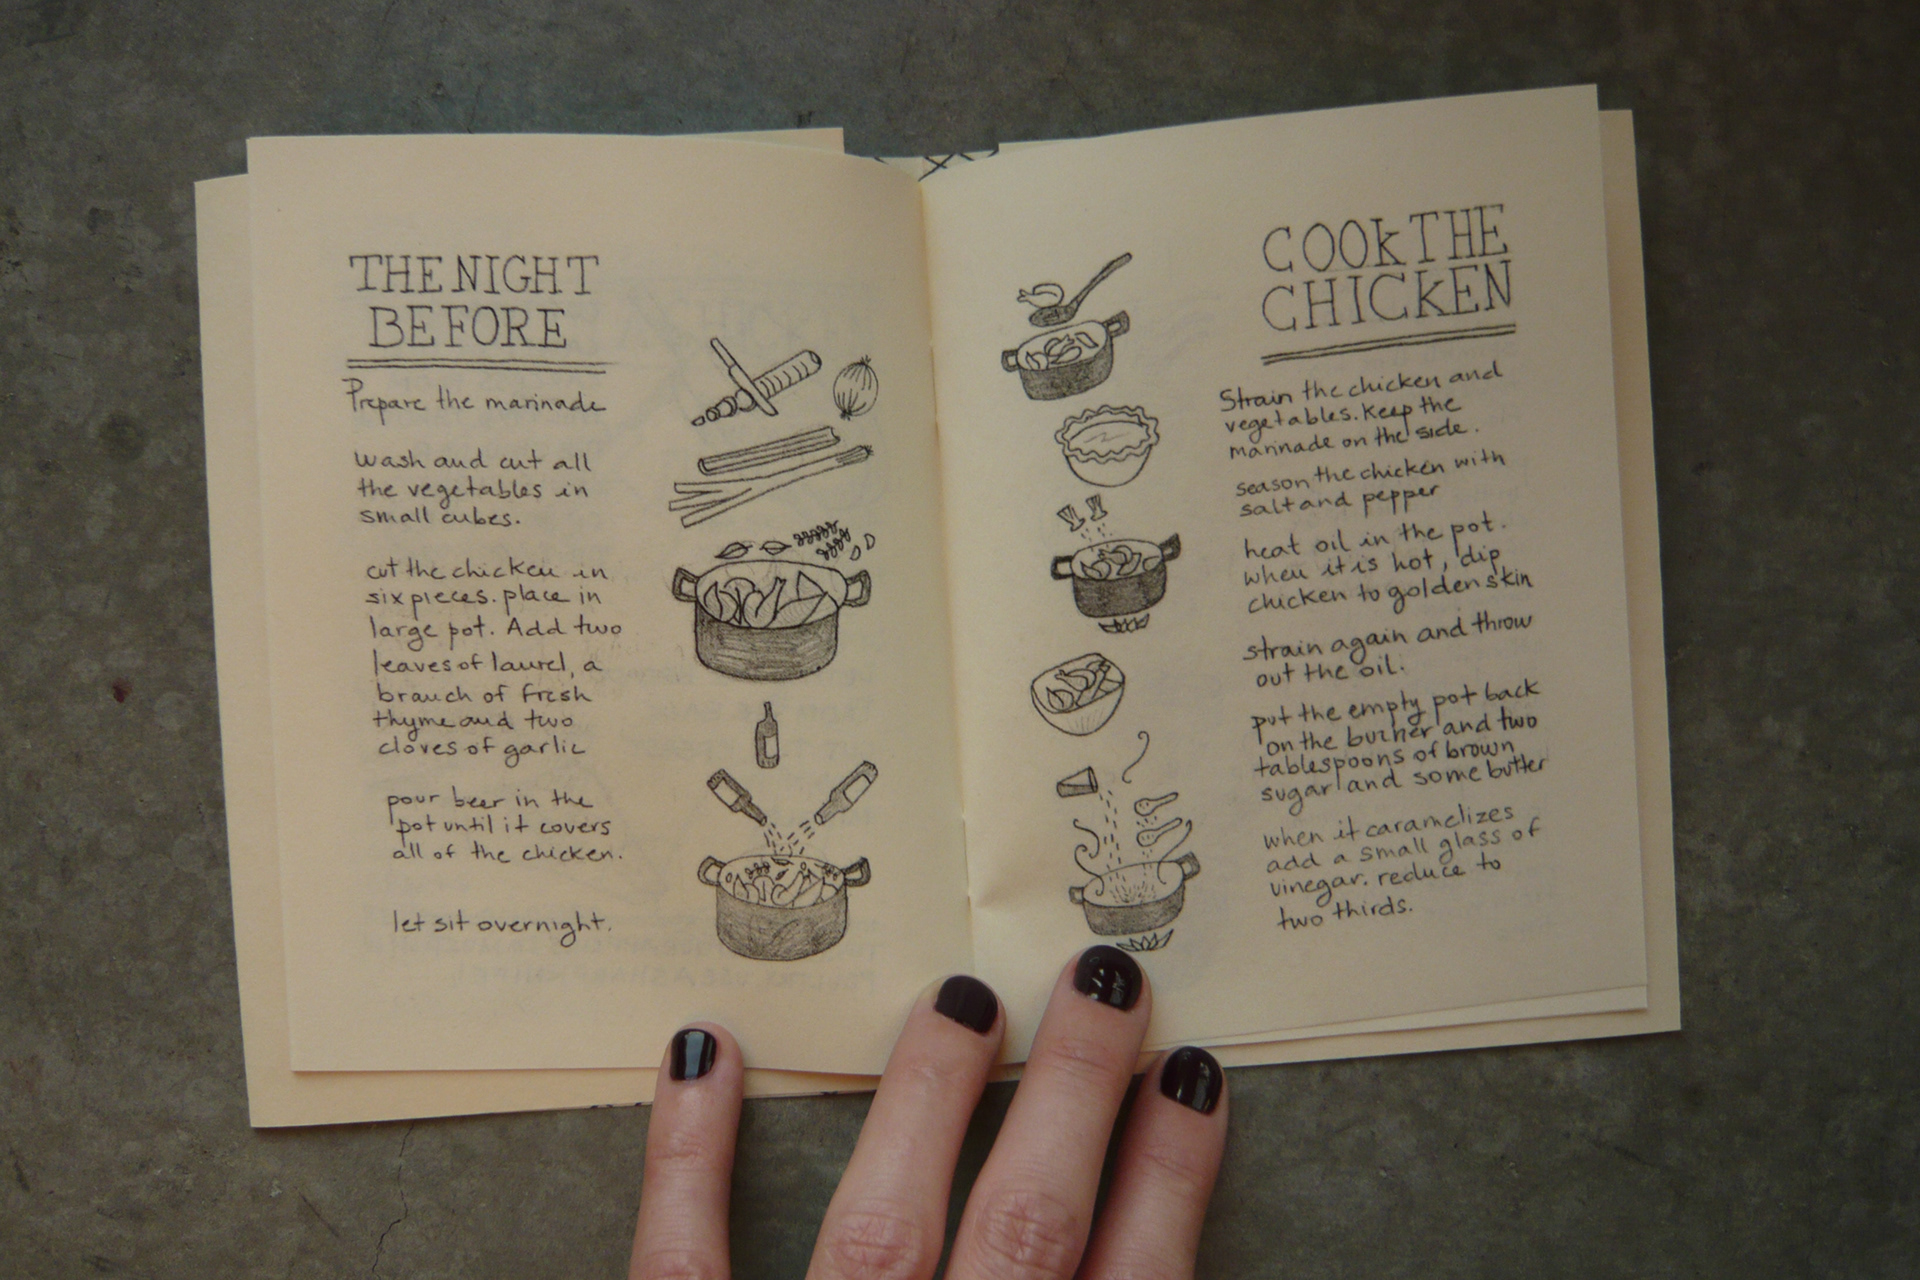 THE NIGHT
BEFORE
Prepare the marinade
wash and cut all
the vegetables in
small cubes.
cut the chicken in
six pieces. place in
large pot. Add two
leaves of laurel, a
branch of fresh
thyme and two
cloves of garlic
pour beer in the
pot until it covers
all of the chicken.
let sit overnight.
COOK THE
CHICKEN
Strain the chicken and
vegetables. Keep the
marinade on the side.
season the chicken with
salt and pepper
heat oil in the pot.
when it is hot, dip
chicken to golden skin
strain again and throw
out the oil.
put the empty pot back
on the burner and two
tablespoons of brown
sugar and some butter
when it caramelizes
add a small glass of
vinegar. reduce to
two thirds.